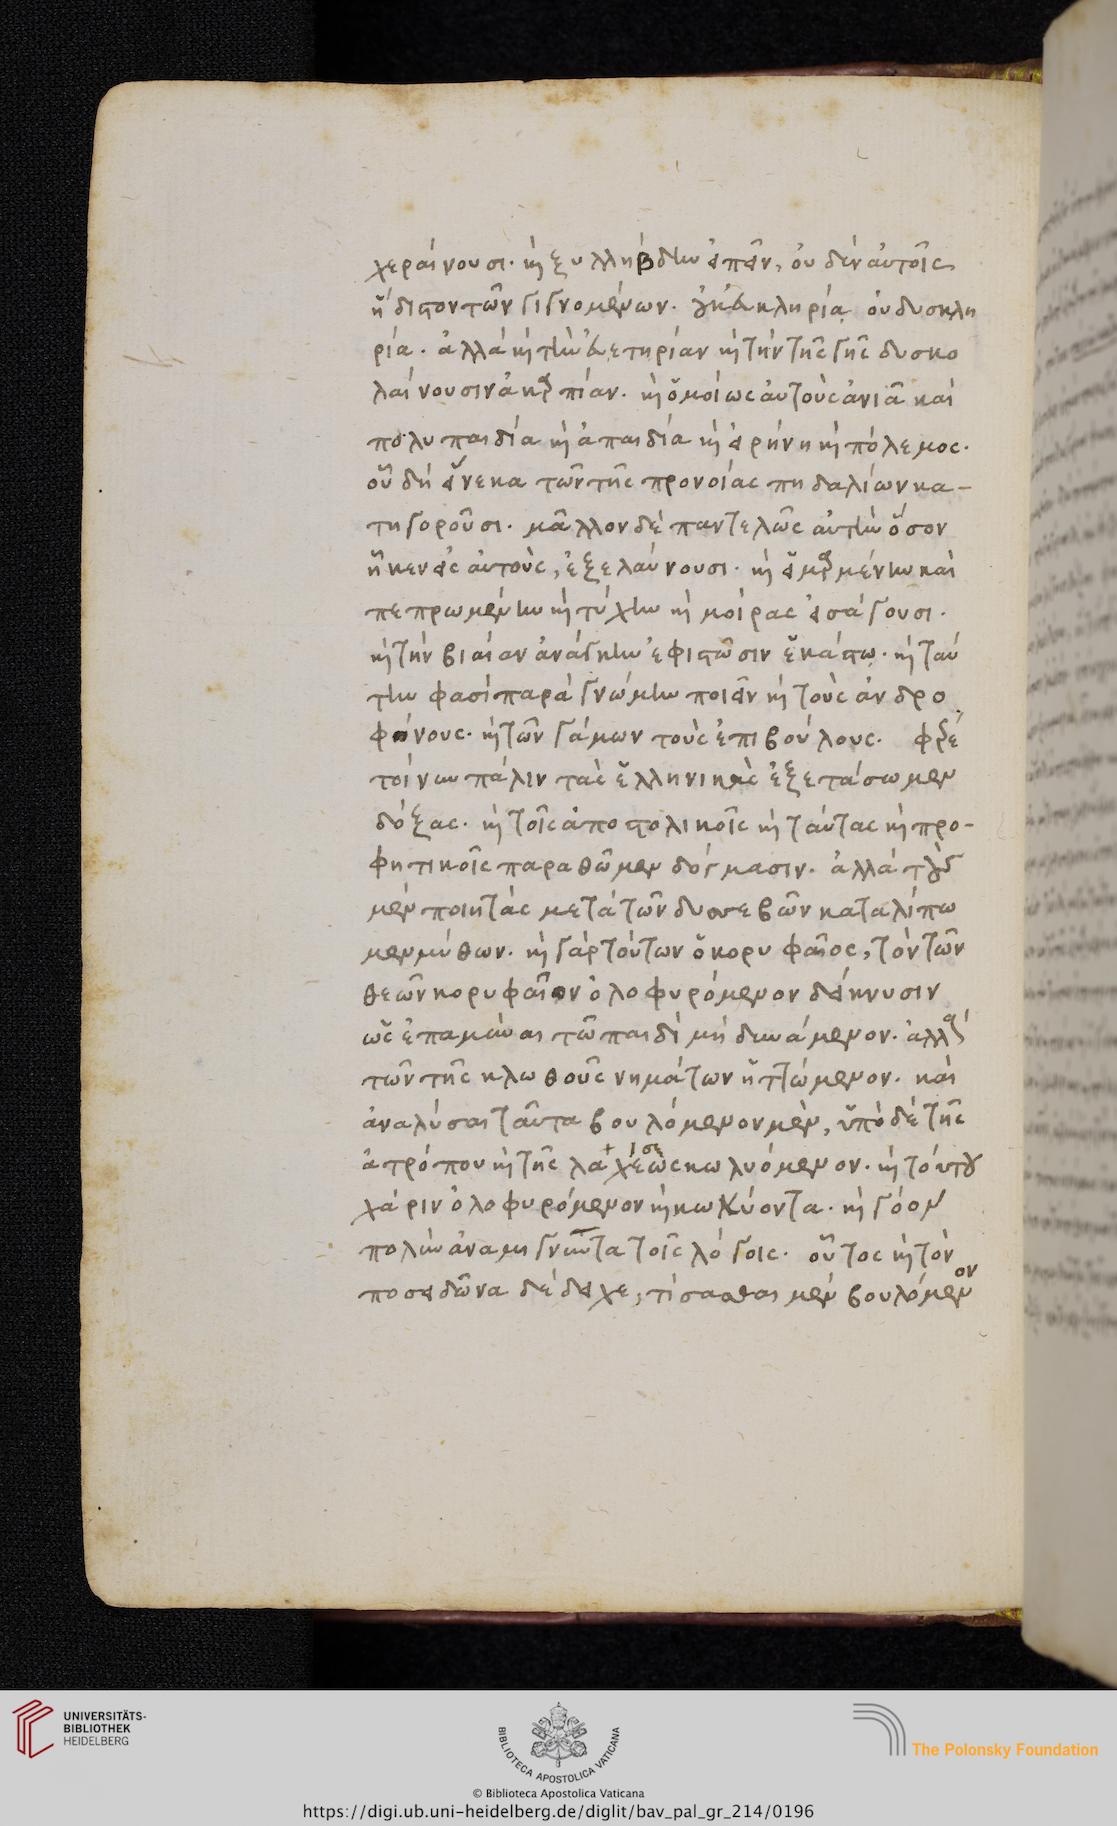 χεραίνουσι. καὶ ξυλλήβδην εἰπεῖν, οὐδὲν αὐτοῖς
ἥδιστον τῶν γιγνομένων.
ρία. ἀλλὰ καὶ τὴν εὐετηρίαν καὶ τὴν τῆς γῆς δυσκο
λαίνουσιν ἀκαρπίαν. καὶ ὁμοίως αὐτοὺς ἀνιᾶ καὶ
πολυπαιδία καὶ ἀπαιδία καὶ εἰρήνη καὶ πόλεμος.
οὗ δὴ εἵνεκα τῶν τῆς προνοίας πηδαλίων κα-
τηγοροῦσι. μᾶλλον δὲ παντελῶς αὐτὴν ὅσον
ἧκεν εἰς αὐτοὺς, ἐξελαύνουσι. καὶ εἱμαρμένην καὶ
πεπρωμένην καὶ τύχην καὶ μοίρας εἰσάγουσι.
καὶ τὴν βιαίαν ἀνάγκην ἐφιστῶσιν ἑκάστῳ. καὶ ταύ
την φασὶ παρὰ γνώμην ποιεῖν καὶ τοὺς ἀνδρο
φόνους. καὶ τῶν γάμων τοὺς ἐπιβούλους. φέρε
τοίνυν πάλιν τὰς ἑλληνικὰς ἐξετάσωμεν
δόξας. καὶ τοῖς ἀποστολικοῖς καὶ ταύτας καὶ προ-
φητικοῖς παραθῶμεν δόγμασιν. ἀλλὰ τοὺς
μὲν ποιητὰς μετὰ τῶν δυσσεβῶν καταλίπω
μεν μύθων. καὶ γὰρ τούτων ὁ κορυφαῖος, τὸν τῶν
θεῶν κορυφαῖον ὀλοφυρόμενον δείκνυσιν
ὡς ἐπαμῦναι τῶ παιδὶ μὴ δυνάμενον. ἀλλὰ
τῶν τῆς κλωθοῦς νημάτων ἡττώμενον. καὶ
ἀναλῦσαι ταῦτα βουλόμενον μὲν, ὑπὸ δὲ τῆς
ἀτρόπου καὶ τῆς λαχέσεως κωλυόμενον. καὶ τούτου
χάριν ὀλοφυρόμενον καὶ κωκύοντα. καὶ γόον
πολὺν ἀναμιγνῦντα τοῖς λόγοις. οὗτος καὶ τὸν
ποσειδῶνα δέδειχε, τίσασθαι μὲν βουλόμενον
UNIVERSITÄTS-
BIBLIOTHEK
HEIDELBERG
BIBLIOTECA APOSTOLICA VATICANA
The Polonsky Foundation
© Biblioteca Apostolica Vaticana
https://digi.ub.uni-heidelberg.de/diglit/bav_pal_gr_214/0196